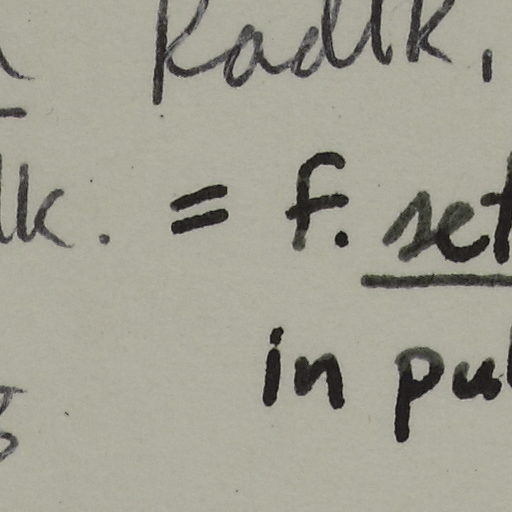 Radlk.
lk. = f. set
in pul